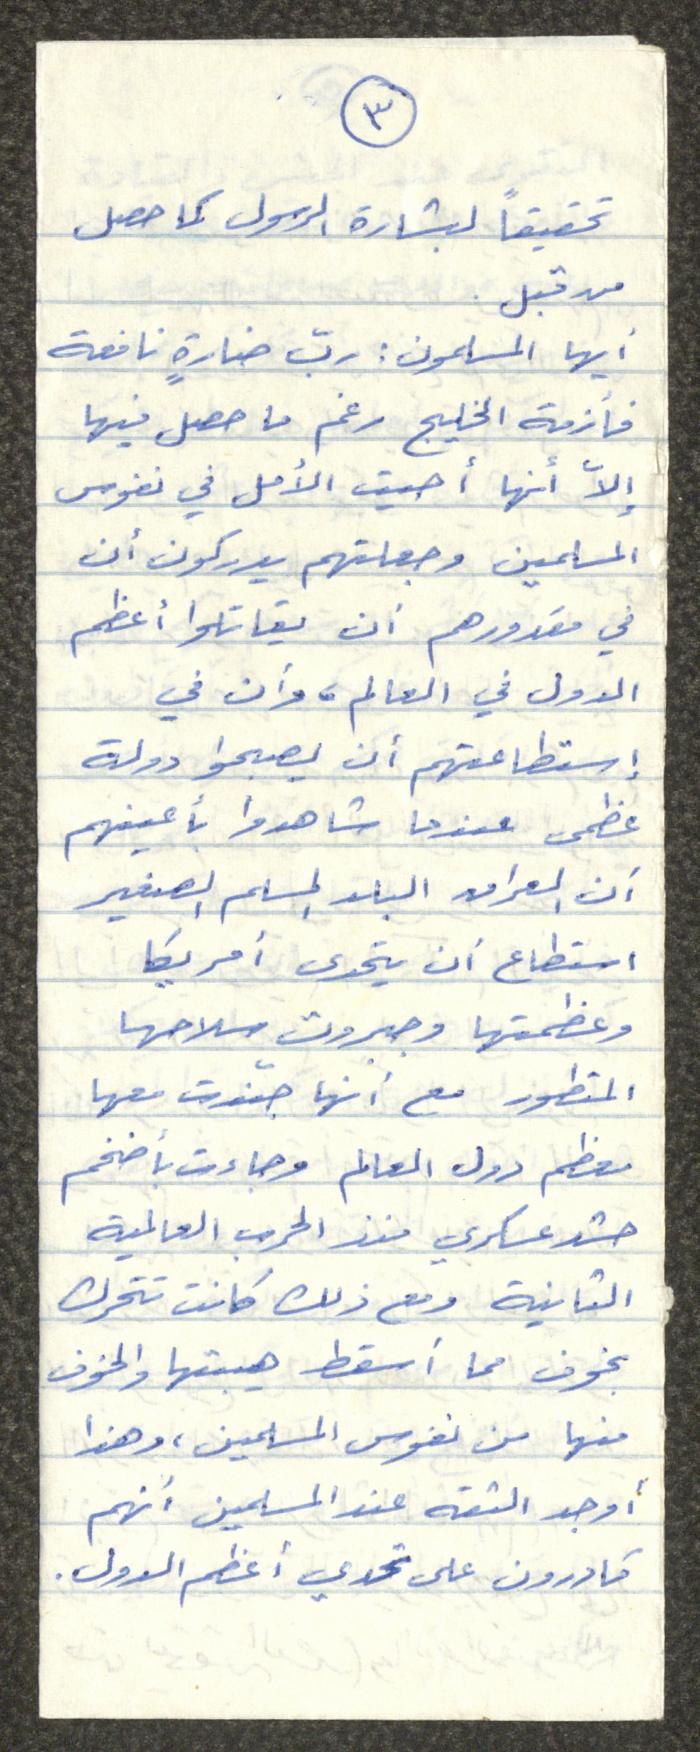 ٣
تحقيقاً لبشارة الرسول كما حصل
من قبل .
أيها المسلمون : ربّ ضارةٍ نافعة
فأزمة الخليج رغم ما حصل فيها
إلاّ أنها أحيت الأمل في نفوس
المسلمين وجعلتهم يدركون أن
في مقدورهم أن يقاتلوا أعظم
الدول في العالم ، وأن في
إستطاعتهم أن يصبحوا دولة
عظمى عندما شاهدوا بأعينهم
أن العراق البلد المسلم الصغير
استطاع أن يتحدى أمريكا
وعظمتها وجبروت سلاحها
المتطور مع أنها جنّدت معها
معظم دول العالم وجاءت بأضخم
حشد عسكري منذ الحرب العالمية
الثانية ومع ذلك كانت تتحرك
بخوف مما أسقط هيبتها والخوف
منها من نفوس المسلمين ، وهذا
أوجد الثقة عند المسلمين أنهم
قادرون على تحدي أعظم الدول .